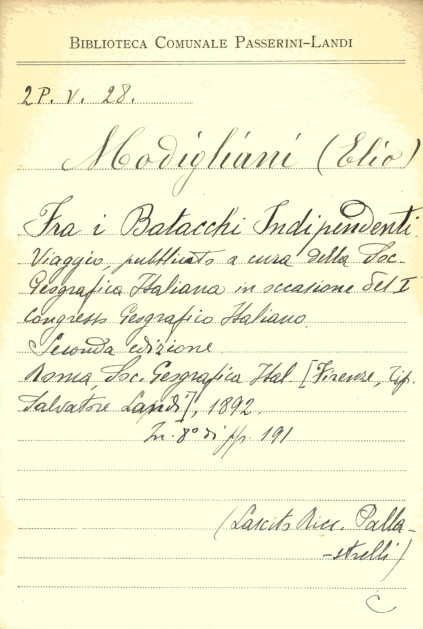 BIBLIOTECA COMUNALE PASSERINI-LANDI
2P. V. 28.
Modigliani (Elio)
Fra i Batacchi Indipendenti
Viaggio, pubblicato a cura della Soc.
Geografica Italiana in occasione del I
Congresso Geografico Italiano.
Seconda edizione
Roma, Soc. Geografica Ital. [Firenze, Tip.
Salvatore Landi], 1892.
In-8° di pp. 191
(Lascito Ricc. Palla-
-strelli)
C